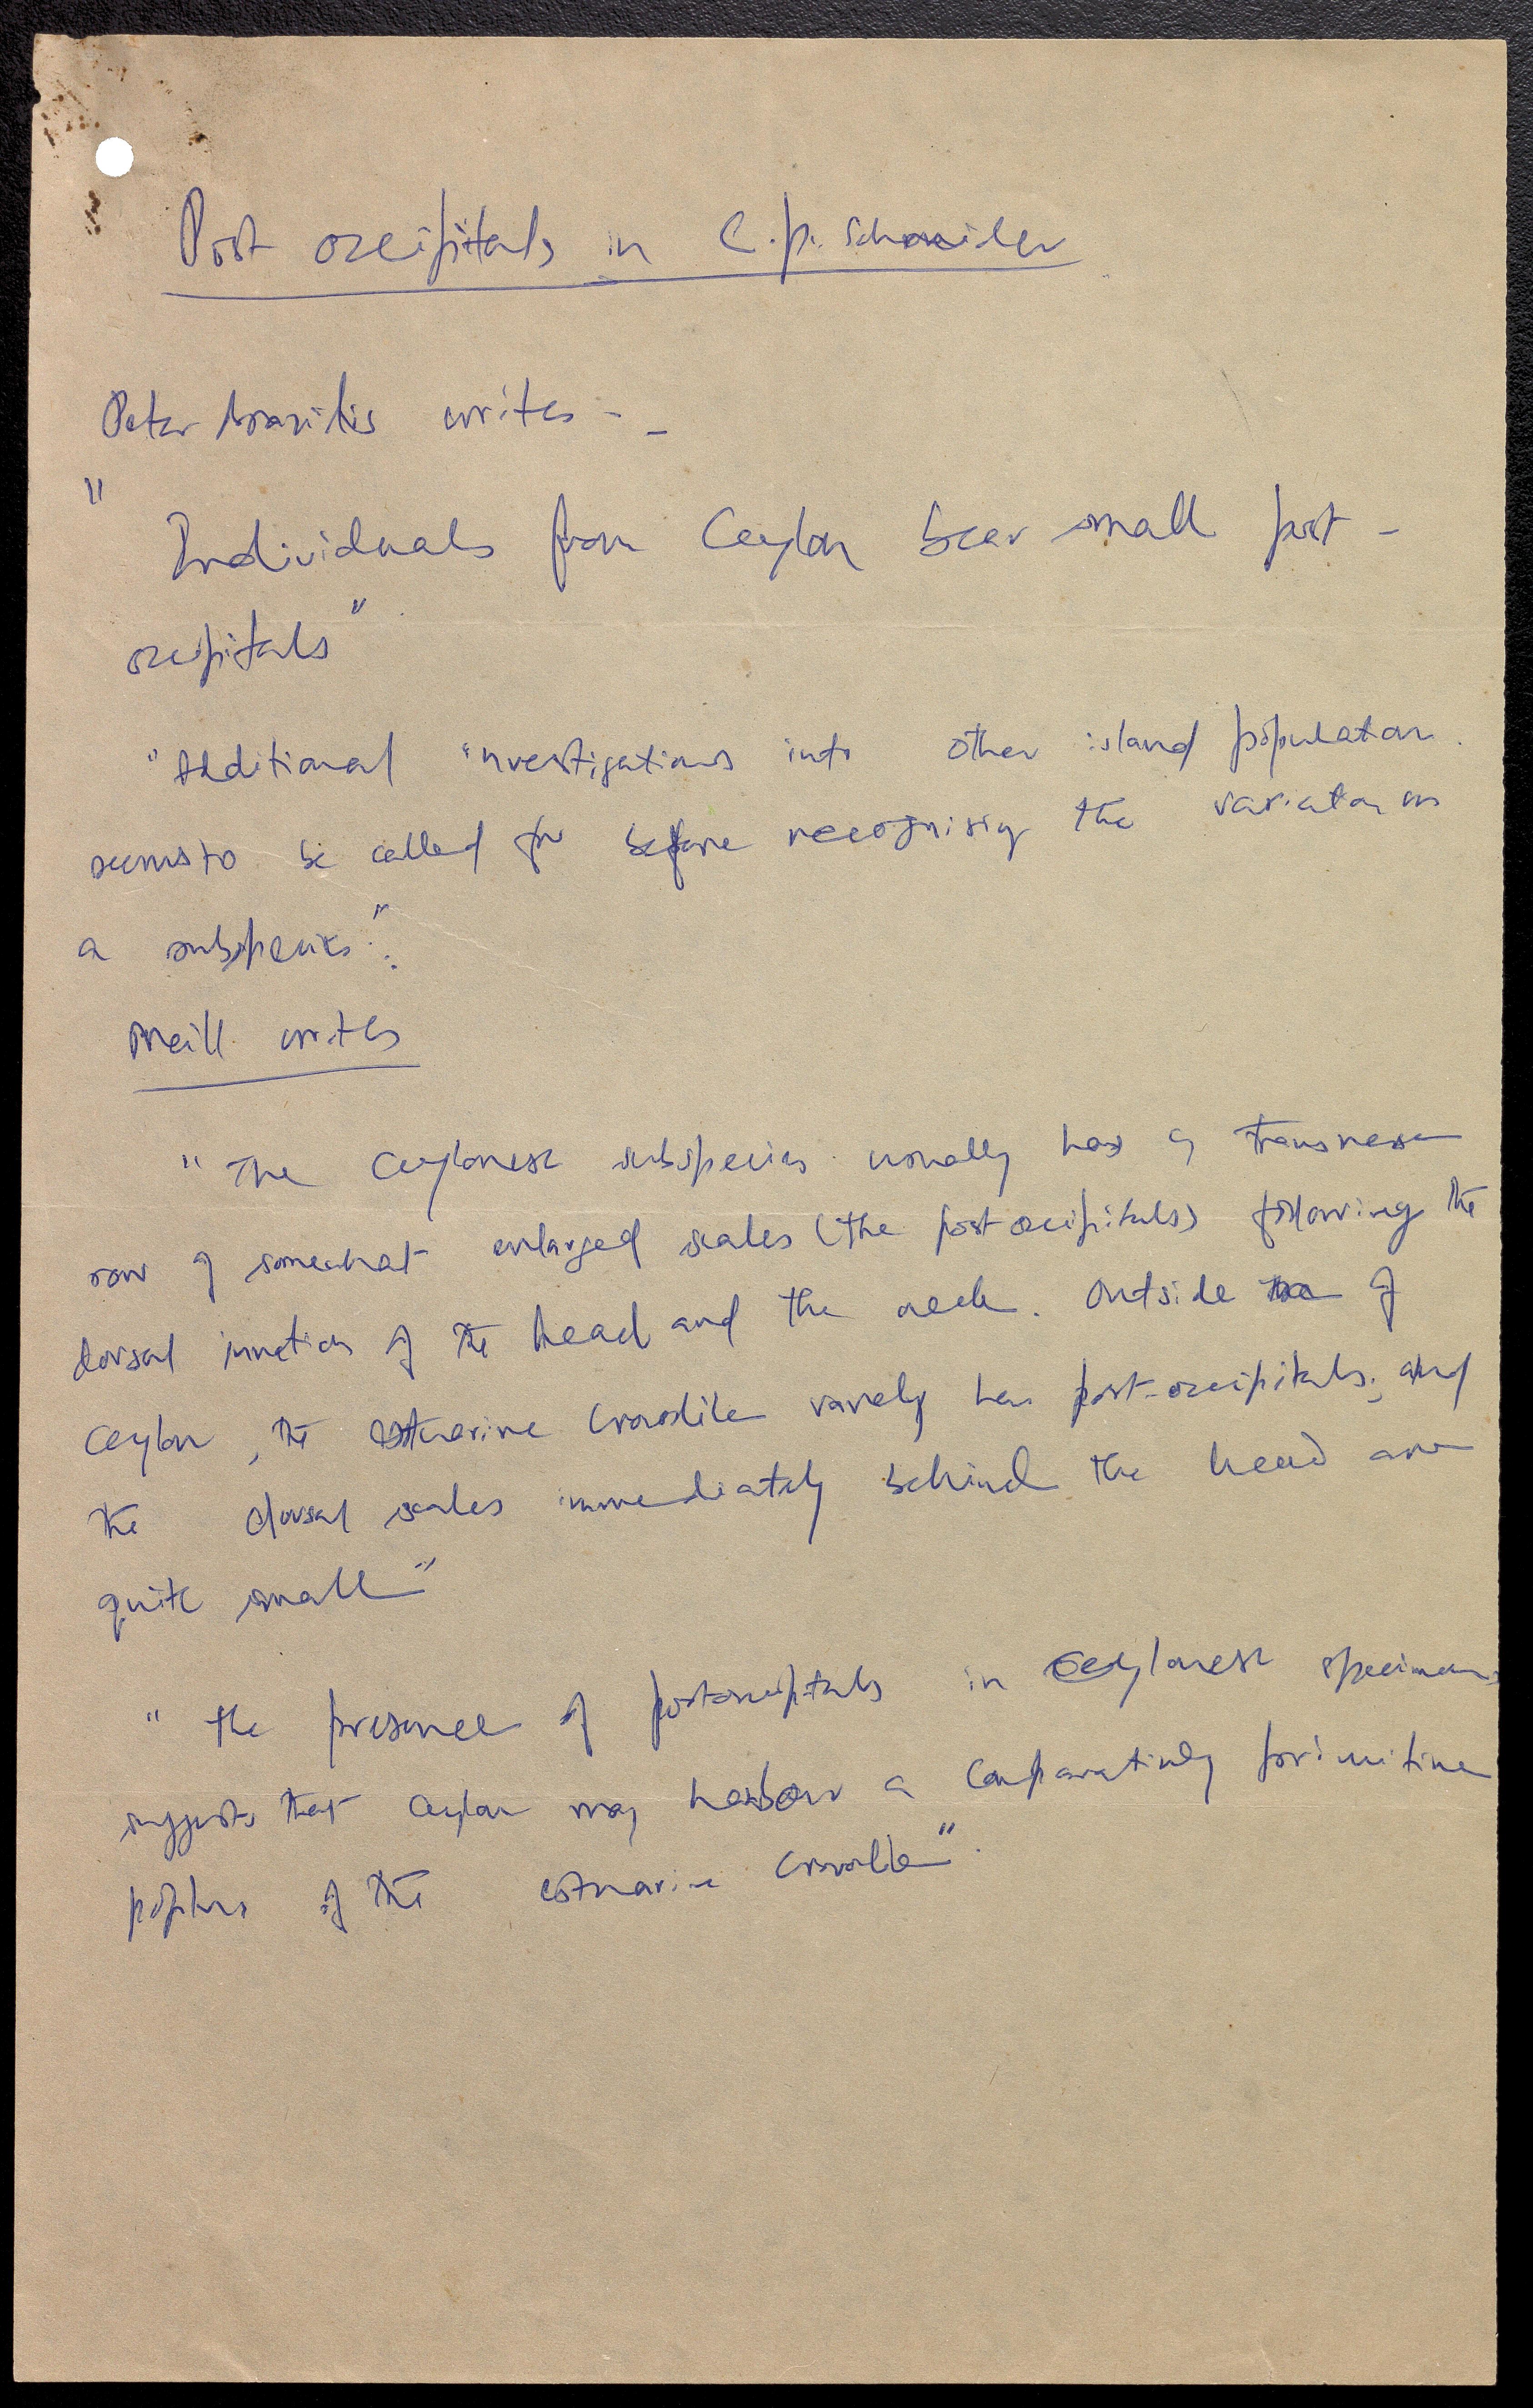 Post occipitals in C.p. Schneider
Peter Brazitis writes - -
"
Individuals from Ceylon bear small post -
occipitals"
"Additional investigations into other island population.
seems to be called for before recognising the variation as
a subspecies".
Neill writes
"The Ceylonese subspecies usually has a transverse
row of somewhat enlarged scales (the post occipitals) following the
dorsal junction of the head and the neck. Outside of
Ceylon, the estuarine Crocodile rarely has post-occipitals; and
the dorsal scales immediately behind the head are
quite small"
"the presence of postoccipitals in Ceylonese specimens
suggests that Ceylon may harbour a Comparatively primitive
of the estuarine Crocodile".